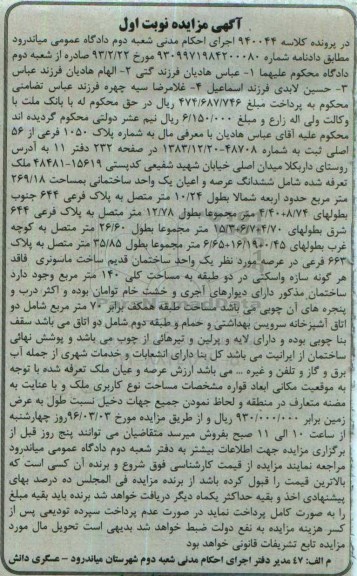 آگهی مزایده نوبت اول
در پرونده کلاسه ۹۴۰۰۴۴ اجرای احکام مدنی شعبه دوم دادگاه عمومی میاندرود
مطابق دادنامه شماره ۹۳۰۹۹۷۱۹۸۴۲۰۰۰۸۰ مورخ ۹۳/۲/۲۲ صادره از شعبه دوم
دادگاه محکوم علیهما ۱- عباس هادیان فرزند گتی ۲- الهام هادیان فرزند عباس
۳- حسین لابدی فرزند اسماعیل ۴- غلامرضا سیه چهره فرزند عباس تضامنی
محکوم به پرداخت مبلغ ۴۷۴/۶۸۷/۷۴۶ ریال در حق محکوم له با بانک ملت با
وکالت ولی اله زارع و مبلغ ۶/۱۵۰/۰۰۰ ریال نیم عشر دولتی محکوم گردیده اند
محکوم علیه آقای عباس هادیان با معرفی مال به شماره پلاک ۱۰۵۰ فرعی از ۵۶
اصلی ثبت به شماره ۴۸۷۰۸-۱۳۸۳/۱۲/۲۰ در صفحه ۲۳۲ دفتر ۱۱ به آدرس
روستای داربکلا میدان اصلی خیابان شهید شفیعی کدپستی ۱۵۶۱۹-۴۸۴۸۱ ملک
تعرفه شده شامل ششدانگ عرصه و اعیان یک واحد ساختمانی بمساحت ۲۶۹/۱۸
متر مربع حدود اربعه شمالا بطول ۱۰/۲۴ متر متصل به پلاک فرعی ۶۴۴ جنوب
بطولهای ۴/۴۰۰۸/۷۴ متر مجموعا بطول ۱۲/۷۸ متر متصل به پلاک فرعی ۶۴۴
شرق بطولهای ۱۵/۳۰۶/۷۰۴/۷۰ متر مجموعا بطول ۲۶/۶۰ متر متصل به کوچه
غرب بطولهای ۶/۶۵۰۱۶/۱۹۰۰/۴۵ متر مجموعا بطول ۳۵/۸۵ متر متصل به پلاک
۶۶۳ فرعی در عرصه مورد نظر یک واحد ساختمان قدیم ساخت ماسونری فاقد
هر گونه سازه واسکتی در دو طبقه به مساحت کلی ۱۴۰ متر مربع وجود دارد
ساختمان مذکور دارای دیوارهای آجری و خشت خام توامان بوده و اکثر درب و
پنجره های آن چوبی می باشد مساحت طبقه همکف برابر ۷۰ متر مربع شامل دو
اتاق آشپزخانه سرویس بهداشتی و حمام و طبقه دوم شامل دو اتاق می باشد سقف
بنا چوبی بوده و دارای لایه و پرلین و تیرهائی از چوب می باشد و پوشش نهائی
ساختمان از ایرانیت می باشد کل بنا دارای انشعابات و خدمات شهری از جمله آب
برق و گاز و تلفن و غیره ... می باشد ارزش عرصه و عیان ملک تعرفه شده با توجه
به موقعیت مکانی ابعاد قواره مشخصات مساحت نوع کاربری ملک و با عنایت به
مضنه متعارف در منطقه و لحاظ نمودن جمیع جهات دخیل نسبت طول به عرض
زمین برابر ۹۳۰/۰۰۰/۰۰۰ ریال و از طریق مزایده مورخ ۹۶/۰۳/۰۳ روز چهارشنبه
از ساعت ۱۰ الی ۱۱ صبح بفروش میرسد متقاضیان می توانند پنج روز قبل از
برگزاری مزایده جهت اطلاعات بیشتر به دفتر شعبه دوم دادگاه عمومی میاندرود
مراجعه نمایند مزایده از قیمت کارشناسی فوق شروع و برنده آن کسی است که
بالاترین قیمت را قبول کرده باشد از برنده مزایده فی المجلس ده درصد بهای
پیشنهادی اخذ و بقیه حداکثر یکماه دیگر دریافت خواهد شد برنده باید بقیه مبلغ
را به صورت کامل پرداخت نماید در صورت عدم پرداخت سپرده تودیعی پس از
کسر هزینه مزایده به نفع دولت ضبط خواهد شد بدیهی است تحویل مال مورد
مزایده تابع تشریفات قانونی خواهد بود
م الف: ۴۷ مدیر دفتر اجرای احکام مدنی شعبه دوم شهرستان میاندرود - عسگری دانش